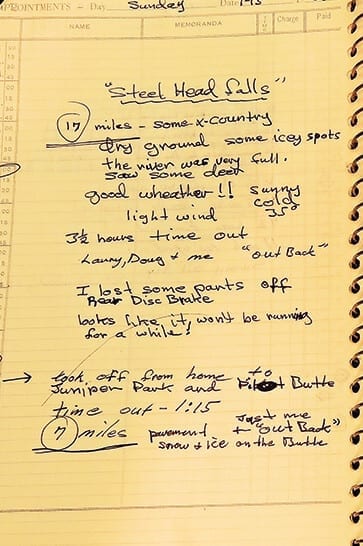 APPOINTMENTS - Day Sunday Date 1-13
NAME MEMORANDA TIME Charge Paid
"Steel Head falls"
17 miles - some x-country
dry ground some icey spots
the river was very full.
saw some deer
good wheather!! sunny
cold
light wind 35°
3½ hours time out
Laury, Doug + me "out Back"
I lost some parts off
Rear Disc Brake
looks like it, won't be running
for a while!
→ took off from home to
Juniper Park and Pilot Butte
time out - 1:15
7 miles pavement Just me
+ "out Back"
snow + ice on the Butte